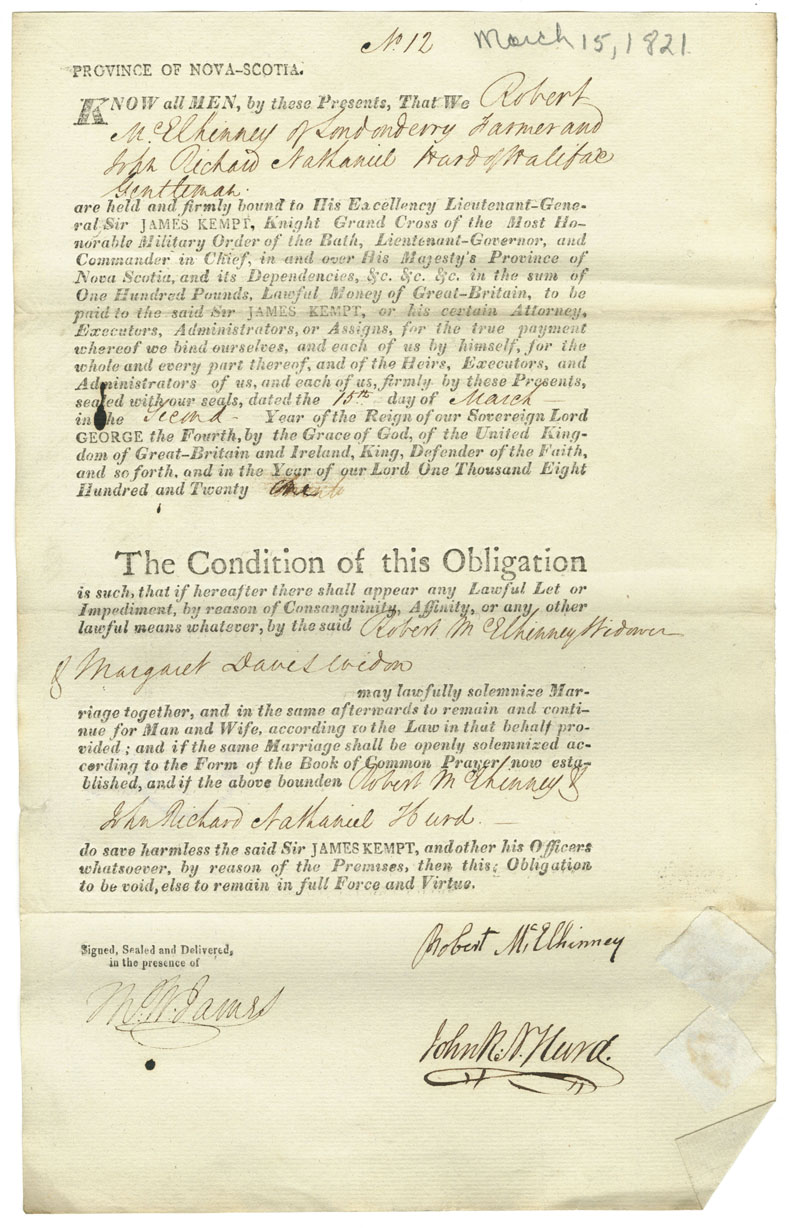 No 12 March 15, 1821
PROVINCE OF NOVA-SCOTIA.
KNOW all MEN, by these Presents, That We Robert
McElhinney of Londonderry Farmer and
John Richard Nathaniel Hurd of Halifax
Gentleman.
are held and firmly bound to His Excellency Lieutenant-Gene-
ral Sir JAMES KEMPT, Knight Grand Cross of the Most Ho-
norable Military Order of the Bath, Lieutenant-Governor, and
Commander in Chief, in and over His Majesty's Province of
Nova Scotia, and its Dependencies, &c. &c. &c. in the sum of
One Hundred Pounds, Lawful Money of Great-Britain, to be
paid to the said Sir JAMES KEMPT, or his certain Attorney,
Executors, Administrators, or Assigns, for the true payment
whereof we bind ourselves, and each of us by himself, for the
whole and every part thereof, and of the Heirs, Executors, and
Administrators of us, and each of us, firmly by these Presents,
sealed with our seals, dated the 15th day of March
in the Second Year of the Reign of our Sovereign Lord
GEORGE the Fourth, by the Grace of God, of the United King-
dom of Great-Britain and Ireland, King, Defender of the Faith,
and so forth, and in the Year of our Lord One Thousand Eight
Hundred and Twenty
The Condition of this Obligation
is such, that if hereafter there shall appear any Lawful Let or
Impediment, by reason of Consanguinity, Affinity, or any other
lawful means whatever, by the said Robert McElhinney Widower
& Margaret Davis widow
may lawfully solemnize Mar-
riage together, and in the same afterwards to remain and conti-
nue for Man and Wife, according to the Law in that behalf pro-
vided; and if the same Marriage shall be openly solemnized ac-
cording to the Form of the Book of Common Prayer now esta-
blished, and if the above bounden Robert McElhinney &
John Richard Nathaniel Hurd. —
do save harmless the said Sir JAMES KEMPT, and other his Officers
whatsoever, by reason of the Premises, then this Obligation
to be void, else to remain in full Force and Virtue.
Signed, Sealed and Delivered,
in the presence of
Robert McElhinney
James
John R. N. Hurd.